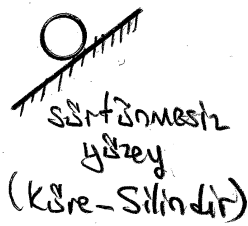 sürtünmesiz
yüzey
(Küre-Silindir)